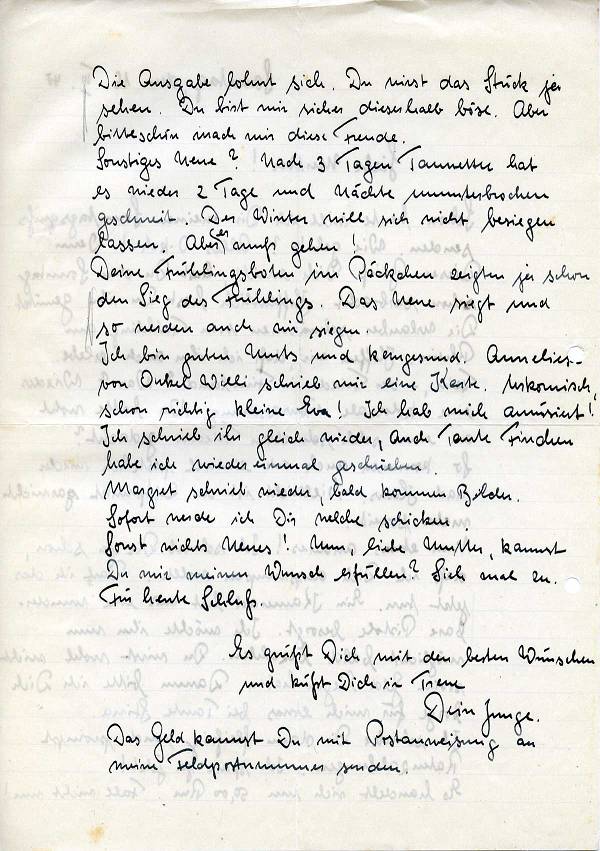 Die Ausgabe lohnt sich. Du wirst das Stück ja
sehen. Du bist mir sicher dieserhalb böse. Aber
bitteschön mach mir diese Freude.
Sonstiges Neue? Nach 3 Tagen Tauwetter hat
es wieder 2 Tage und Nächte ununterbrochen
geschneit. Der Winter will sich nicht besiegen
lassen. Aber er muß gehen!
Deine Frühlingsboten im Päckchen zeigten ja schon
den Sieg des Frühlings. Das Neue siegt und
so werden auch wir siegen.
Ich bin guten Muts und kerngesund. Annelies-
von Onkel Willi schrieb mir eine Karte. Urkomisch,
schon richtig kleine Eva! Ich hab mich amüsiert!
Ich schrieb ihr gleich wieder, auch Tante Finchen
habe ich wieder einmal geschrieben.
Margret schrieb wieder, bald kommen Bilder.
Sofort werde ich Dir welche schicken.
Sonst nichts Neues! Nun, liebe Mutter, kannst
Du mir meinen Wunsch erfüllen? Sieh mal zu.
Für heute Schluß.
Es grüßt Dich mit den besten Wünschen
und küßt Dich in Treue
Dein Junge.
Das Geld kannst Du mit Postanweisung an
meine Feldpostnummer senden.